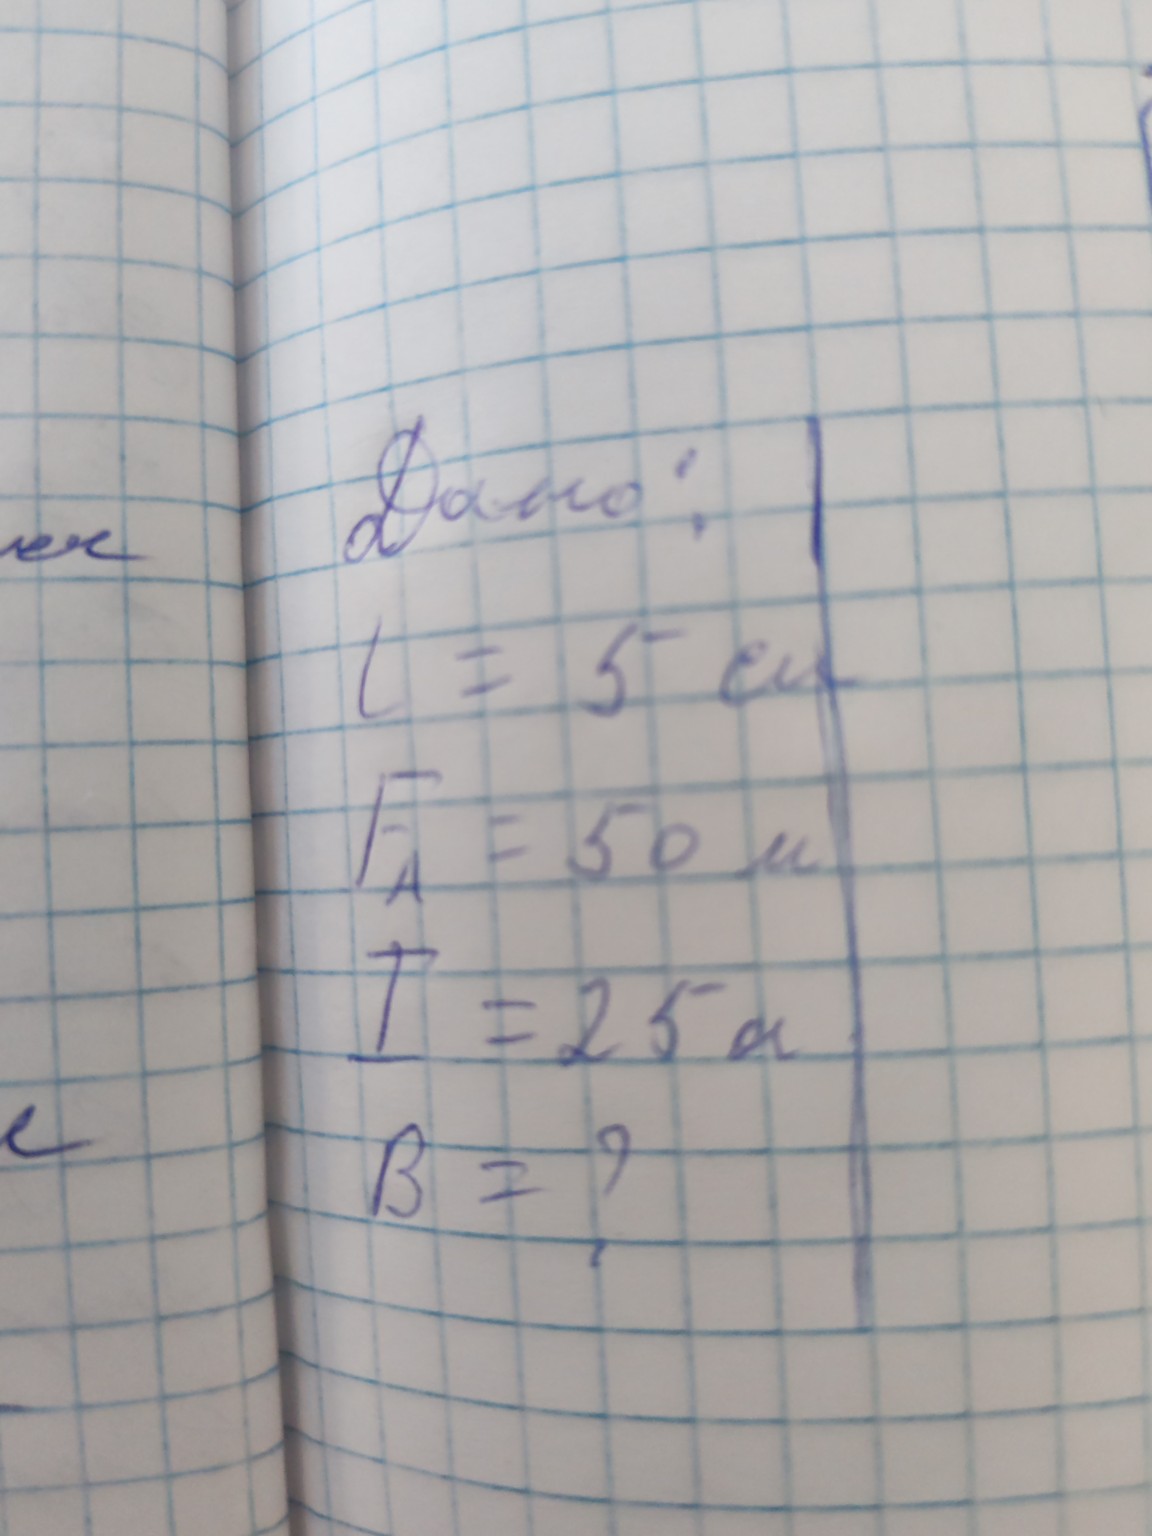 Дано:
l = 5 см
F_A = 50 м
I = 25 а
B = ?